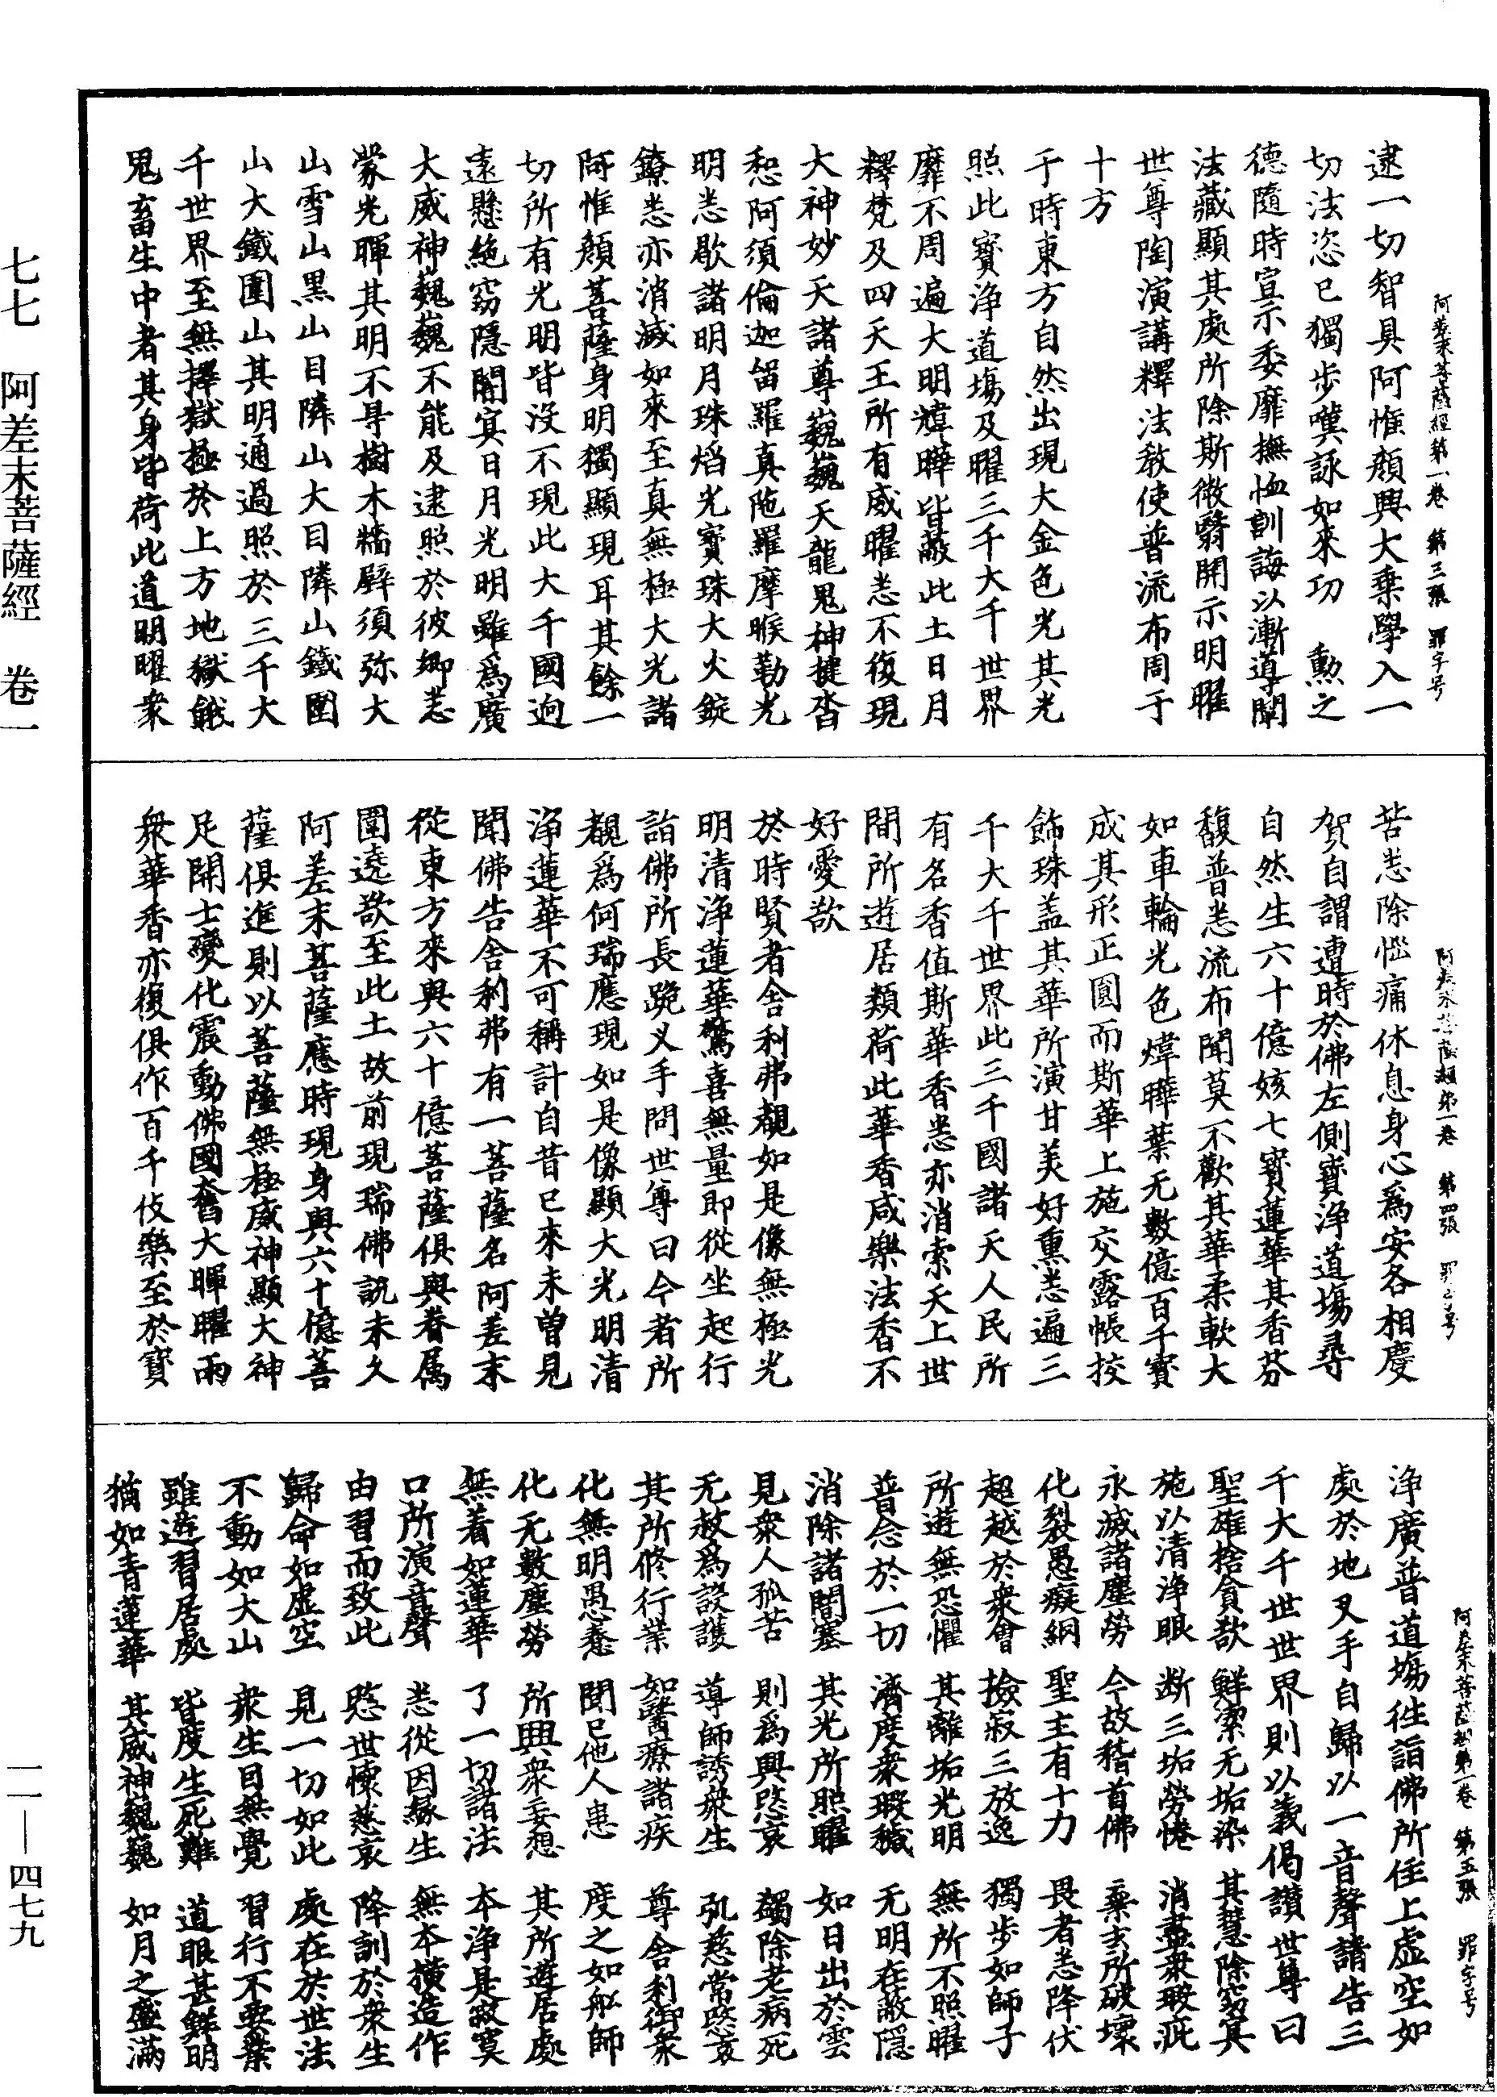 阿差末菩薩經第一卷 第三張 罪字号
逮一切智具阿惟顏興大乗學入一
切法恣已獨步嘆詠如來功 勲之
德隨時宣示委靡撫恤訓誨以漸導闡
法藏顯其處所除斯微翳開示明曜
世尊陶演講釋法教使普流布周于
十方
于時東方自然出現大金色光其光
照此寶浄道場及曜三千大千世界
靡不周遍大明煒曄皆蔽此土日月
釋梵及四天王所有威曜悉不復現
大神妙天諸尊巍巍天龍鬼神揵沓
惒阿須倫迦留羅真陁羅摩睺勒光
明悉歇諸明月珠焰光寶珠大火錠
鐐悉亦消滅如來至真無極大光諸
阿惟顏菩薩身明獨顯現耳其餘一
切所有光明皆没不現此大千國迥
遠懸絶窈隱闇㝠日月光明雖爲廣
大威神巍巍不能及逮照於彼郷悉
蒙光暉其明不㝵樹木牆壁須弥大
山雪山黒山目隣山大目隣山鐵圍
山大鐵圍山其明通過照於三千大
千世界至無擇獄極於上方地獄餓
鬼畜生中者其身皆荷此道明曜衆
阿差末菩薩經第一卷 第四張 罪字号
苦悉除惱痛休息身心爲安各相慶
賀自謂遭時於佛左側寶浄道場尋
自然生六十億姟七寶蓮華其香芬
馥普悉流布聞莫不歡其華柔軟大
如車輪光色煒曄葉无數億百千寶
成其形正圓而斯華上施交露帳挍
飾珠盖其華所演甘美好熏悉遍三
千大千世界此三千國諸天人民所
有名香值斯華香悉亦消索天上世
間所遊居類荷此華香咸樂法香不
好愛欲
於時賢者舎利弗覩如是像無極光
明清浄蓮華驚喜無量即從坐起行
詣佛所長跪叉手問世尊曰今者所
覩爲何瑞應現如是像顯大光明清
浄蓮華不可稱計自昔已來未曽見
聞佛告舎利弗有一菩薩名阿差末
從東方來與六十億菩薩俱與眷属
圍遶欲至此土故前現瑞佛説未久
阿差末菩薩應時現身與六十億菩
薩俱進則以菩薩無極威神顯大神
足開士變化震動佛國奮大暉曜雨
衆華香亦復俱作百千伎樂至於寶
阿差末菩薩經第一卷 第五張 罪字号
浄廣普道場往詣佛所住上虚空如
處於地叉手自歸以一音聲請告三
千大千世世界則以義偈讃世尊曰
聖雄捨貪欲 鮮潔无垢染 其慧除窈㝠
施以清浄眼 断三垢勞惓 消盡衆瑕疵
永滅諸塵勞 今故稽首佛 棄去所破壞
化裂愚癡網 聖主有十力 畏者悉降伏
超越於衆會 撿寂三放逸 獨步如師子
所遊無恐懼 其離垢光明 無所不照曜
普念於一切 濟度衆瑕穢 无明在蔽隱
消除諸闇塞 其光所照曜 如日出於雲
見衆人孤苦 則爲興愍哀 蠲除老病死
无救爲設護 導師誘衆生 弘慈常愍哀
其所修行業 如醫療諸疾 尊舎利御衆
化無明愚惷 聞已他人患 度之如船師
化无數塵勞 所興衆妄想 其所遊居處
無着如蓮華 了一切諸法 本浄是寂寞
口所演音聲 悉從因緣生 無本横造作
由習而致此 愍世懷慈哀 降訓於衆生
歸命如虚空 見一切如此 處在於世法
不動如大山 衆生目無覺 習行不要業
雖遊習居處 皆度生死難 道眼甚鮮明
猶如青蓮華 其威神巍巍 如月之盛滿
七七 阿差末菩薩經 卷一
一一—四七九